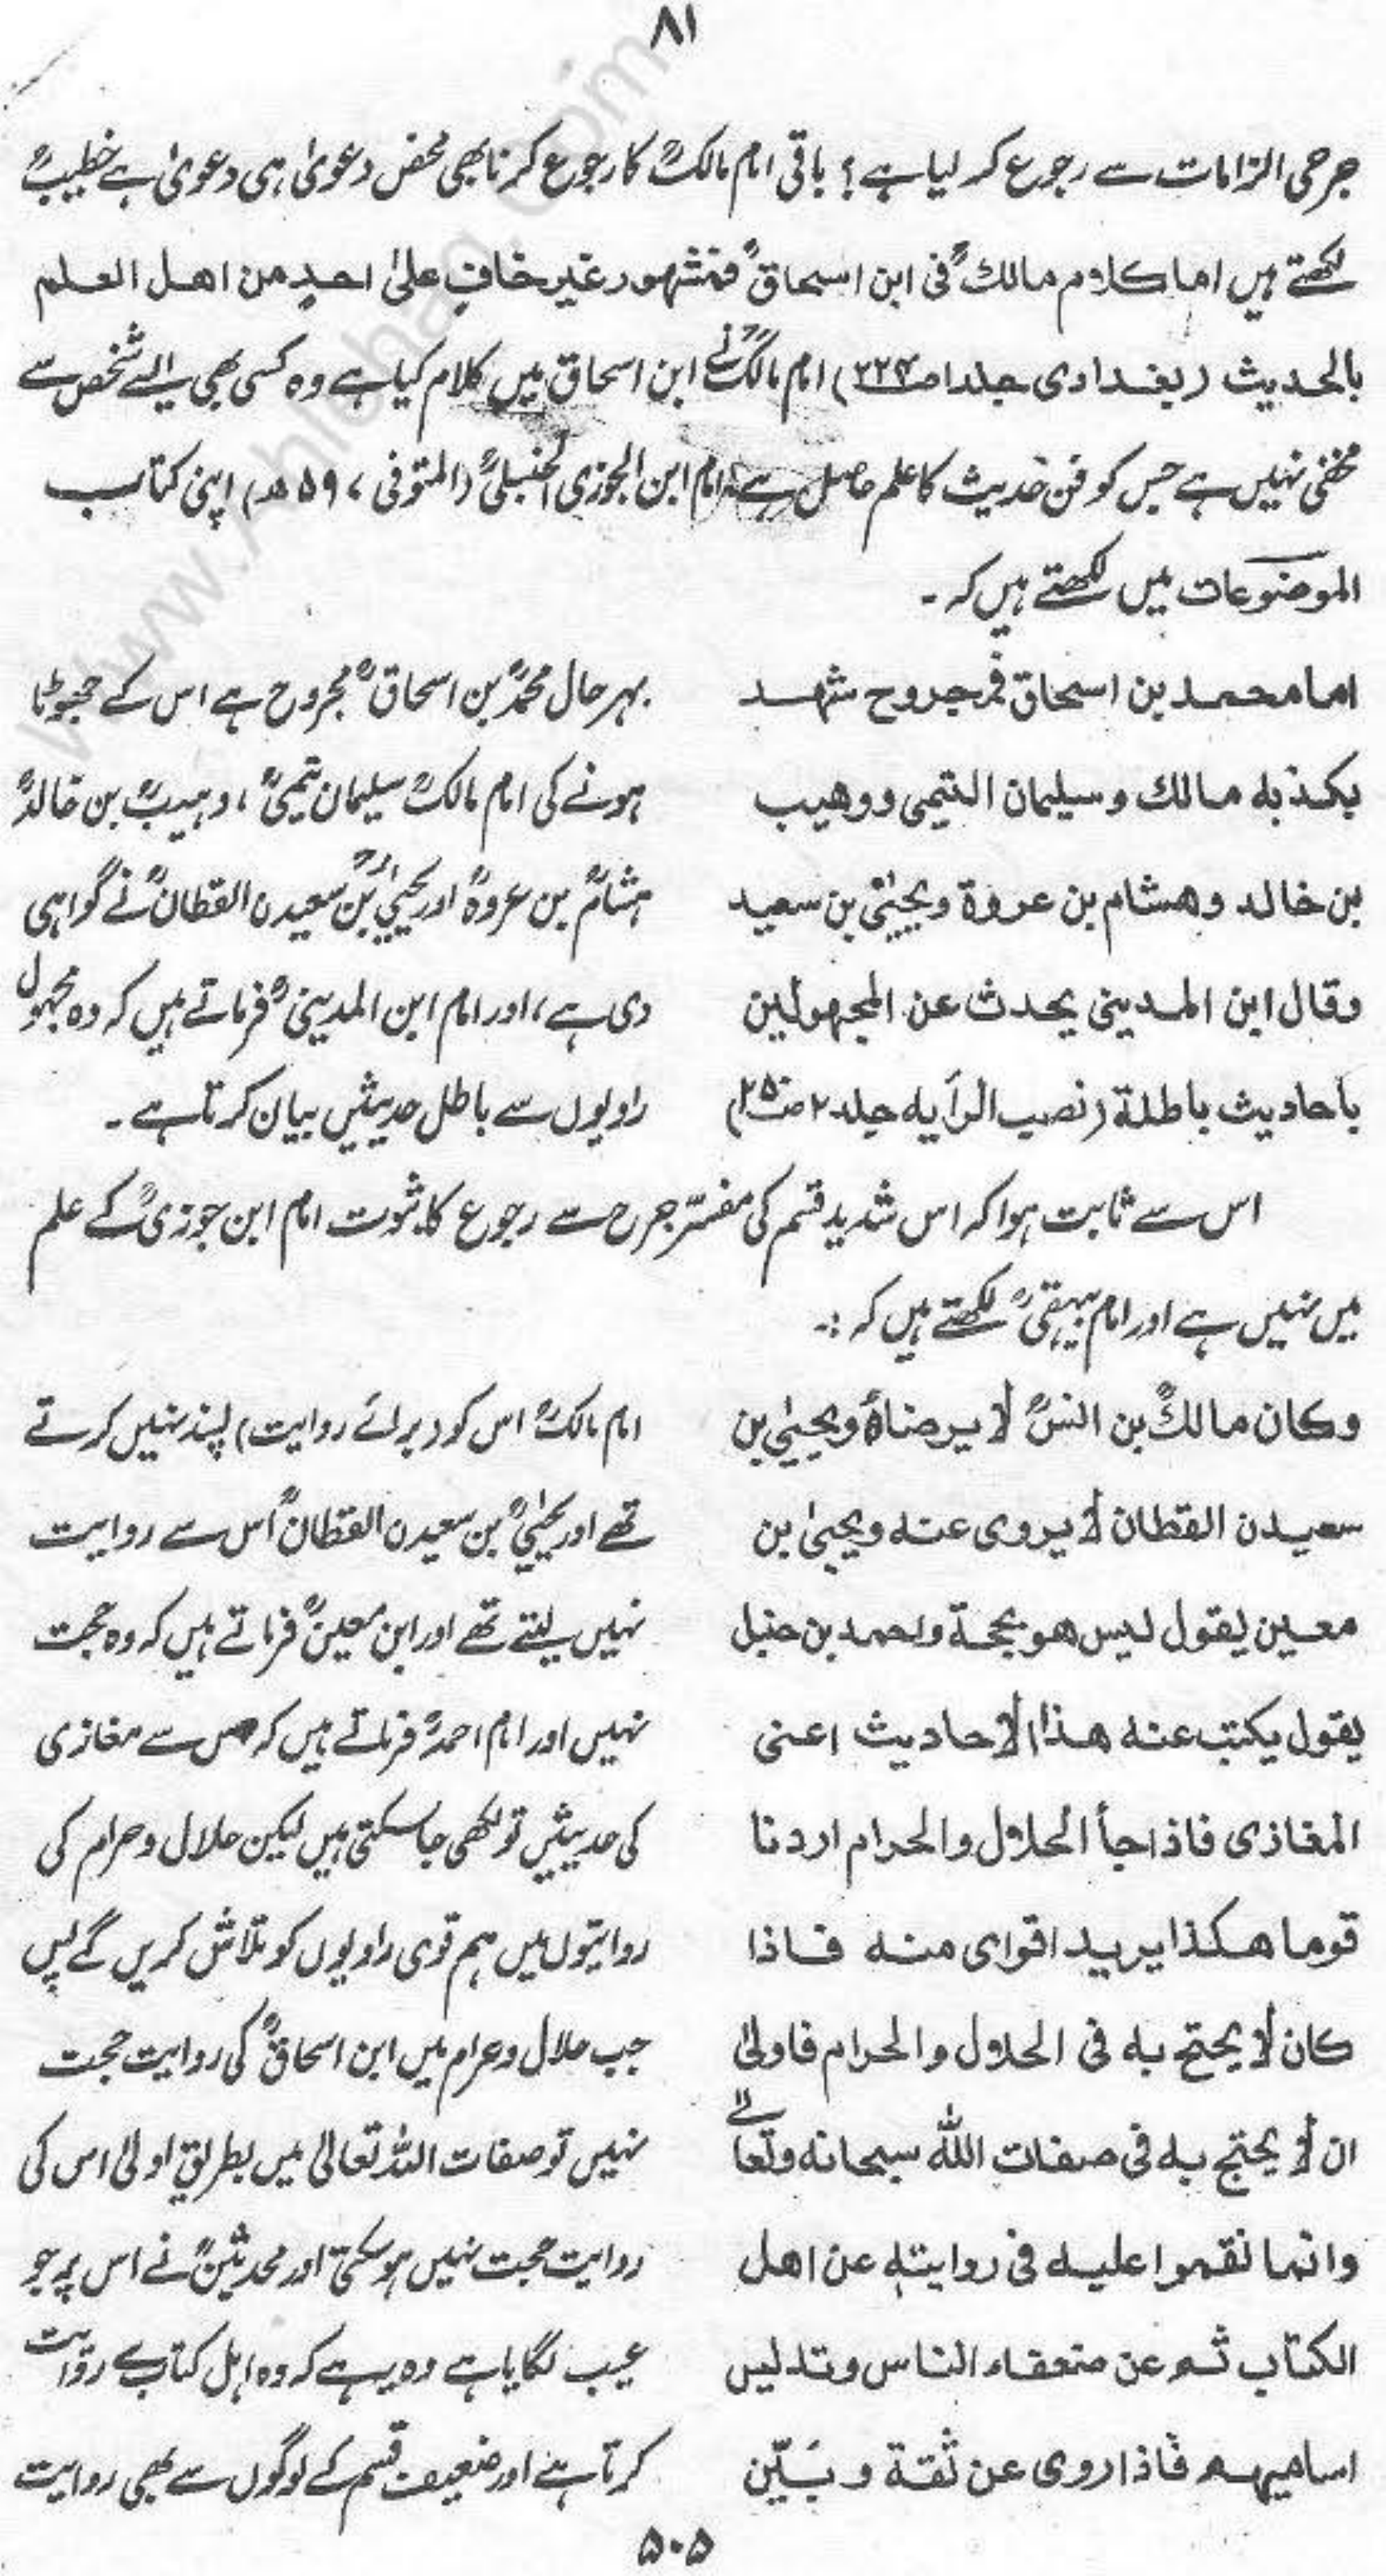 ۸۱
جرحی الزامات سے رجوع کر لیا ہے؟ باقی امام مالکؒ کا رجوع کرنا بھی محض دعویٰ ہی دعویٰ ہے خطیبؒ
لکھتے ہیں اما کلام مالكؒ فی ابن اسحاقؒ فمشهور غیر خافٍ علیٰ احدٍ من اهل العلم
بالحدیث (بغدادی جلد ۱ ص ۲۲۴) امام مالکؒ نے ابن اسحاق میں کلام کیا ہے وہ کسی بھی ایسے شخص سے
مخفی نہیں ہے جس کو فن حدیث کا علم حاصل ہے، امام ابن الجوزی الحنبلیؒ (المتوفی ۵۹۷ھ) اپنی کتاب
الموضوعات میں لکھتے ہیں کہ۔
اما محمد بن اسحاق فمجروح شهد
یکذبه مالك و سلیمان التیمی و وهیب
بن خالد و هشام بن عروة و یحییٰ بن سعید
وقال ابن المدینی یحدث عن المجهولین
باحادیث باطلة (نصب الرأیه جلد ۲ ص ۲۵)
بہر حال محمدؒ بن اسحاقؒ مجروح ہے اس کے جھوٹا
ہونے کی امام مالکؒ سلیمان تیمیؒ، وہیبؒ بن خالدؒ
ہشامؒ بن عروہؒ اور یحییٰؒ بن سعیدن القطانؒ نے گواہی
دی ہے، اور امام ابن المدینیؒ فرماتے ہیں کہ وہ مجہول
راویوں سے باطل حدیثیں بیان کرتا ہے۔
اس سے ثابت ہوا کہ اس شدید قسم کی مفسّر جرح سے رجوع کا ثبوت امام ابن جوزیؒ کے علم
میں نہیں ہے اور امام بیہقیؒ لکھتے ہیں کہ :۔
وکان مالكؒ بن انسؒ لا یرضاہٗ ویحییٰ بن
سعیدن القطان لا یروی عنه ویحییٰ بن
معین یقول لیس هو بحجة واحمد بن حنبل
یقول یکتب عنه هذا الاحادیث اعنی
المغازی فاذا جأ الحلال والحرام اردنا
قوما هكذا یرید اقوای منه فاذا
کان لا یحتج به فی الحلال والحرام فاولیٰ
ان لا یحتج به فی صفات اللّٰه سبحانه وتعالےٰ
وانما نقموا علیه فی روایتهٖ عن اهل
الکتاب ثم عن ضعفاء الناس وتدلیس
اسامیهم فاذا روی عن ثقة و بَیّن
امام مالکؒ اس کو (برائے روایت) پسند نہیں کرتے
تھے اور یحییٰؒ بن سعیدن القطانؒ اُس سے روایت
نہیں لیتے تھے اور ابن معینؒ فرماتے ہیں کہ وہ حجت
نہیں اور امام احمدؒ فرماتے ہیں کہ اس سے مغازی
کی حدیثیں تو لکھی جا سکتی ہیں لیکن حلال و حرام کی
روایتوں میں ہم قوی راویوں کو تلاش کریں گے پس
جب حلال و حرام میں ابن اسحاقؒ کی روایت حجت
نہیں تو صفات اللہ تعالیٰ میں بطریق اولیٰ اس کی
روایت حجت نہیں ہو سکتی اور محدثینؒ نے اس پر جو
عیب لگایا ہے وہ یہ ہے کہ وہ اہل کتاب سے روایت
کرتا ہے اور ضعیف قسم کے لوگوں سے بھی روایت
۵۰۵
www.Ahlehaq.com